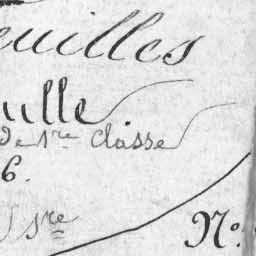 euilles
uille
de 1re Classe
6.
1re
No.